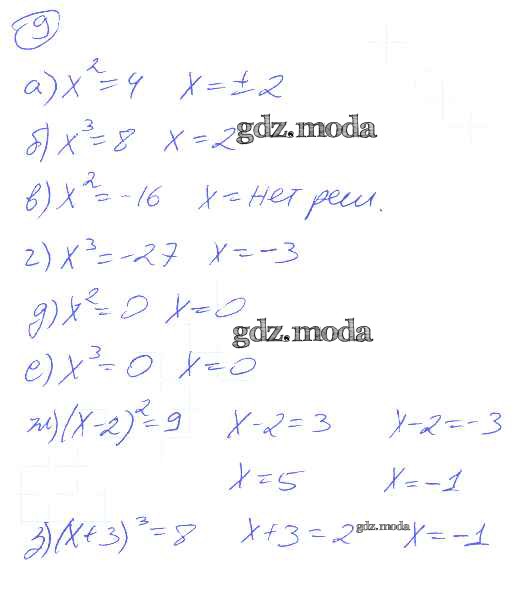 9
а) x² = 4 x = ± 2
б) x³ = 8 x = 2 gdz.moda
в) x² = -16 x = нет реш.
г) x³ = -27 x = -3
д) x² = 0 x = 0
gdz.moda
е) x³ = 0 x = 0
ж) (x-2)² = 9 x-2 = 3 x-2 = -3
x = 5 x = -1
з) (x+3)³ = 8 x+3 = 2 gdz.moda x = -1